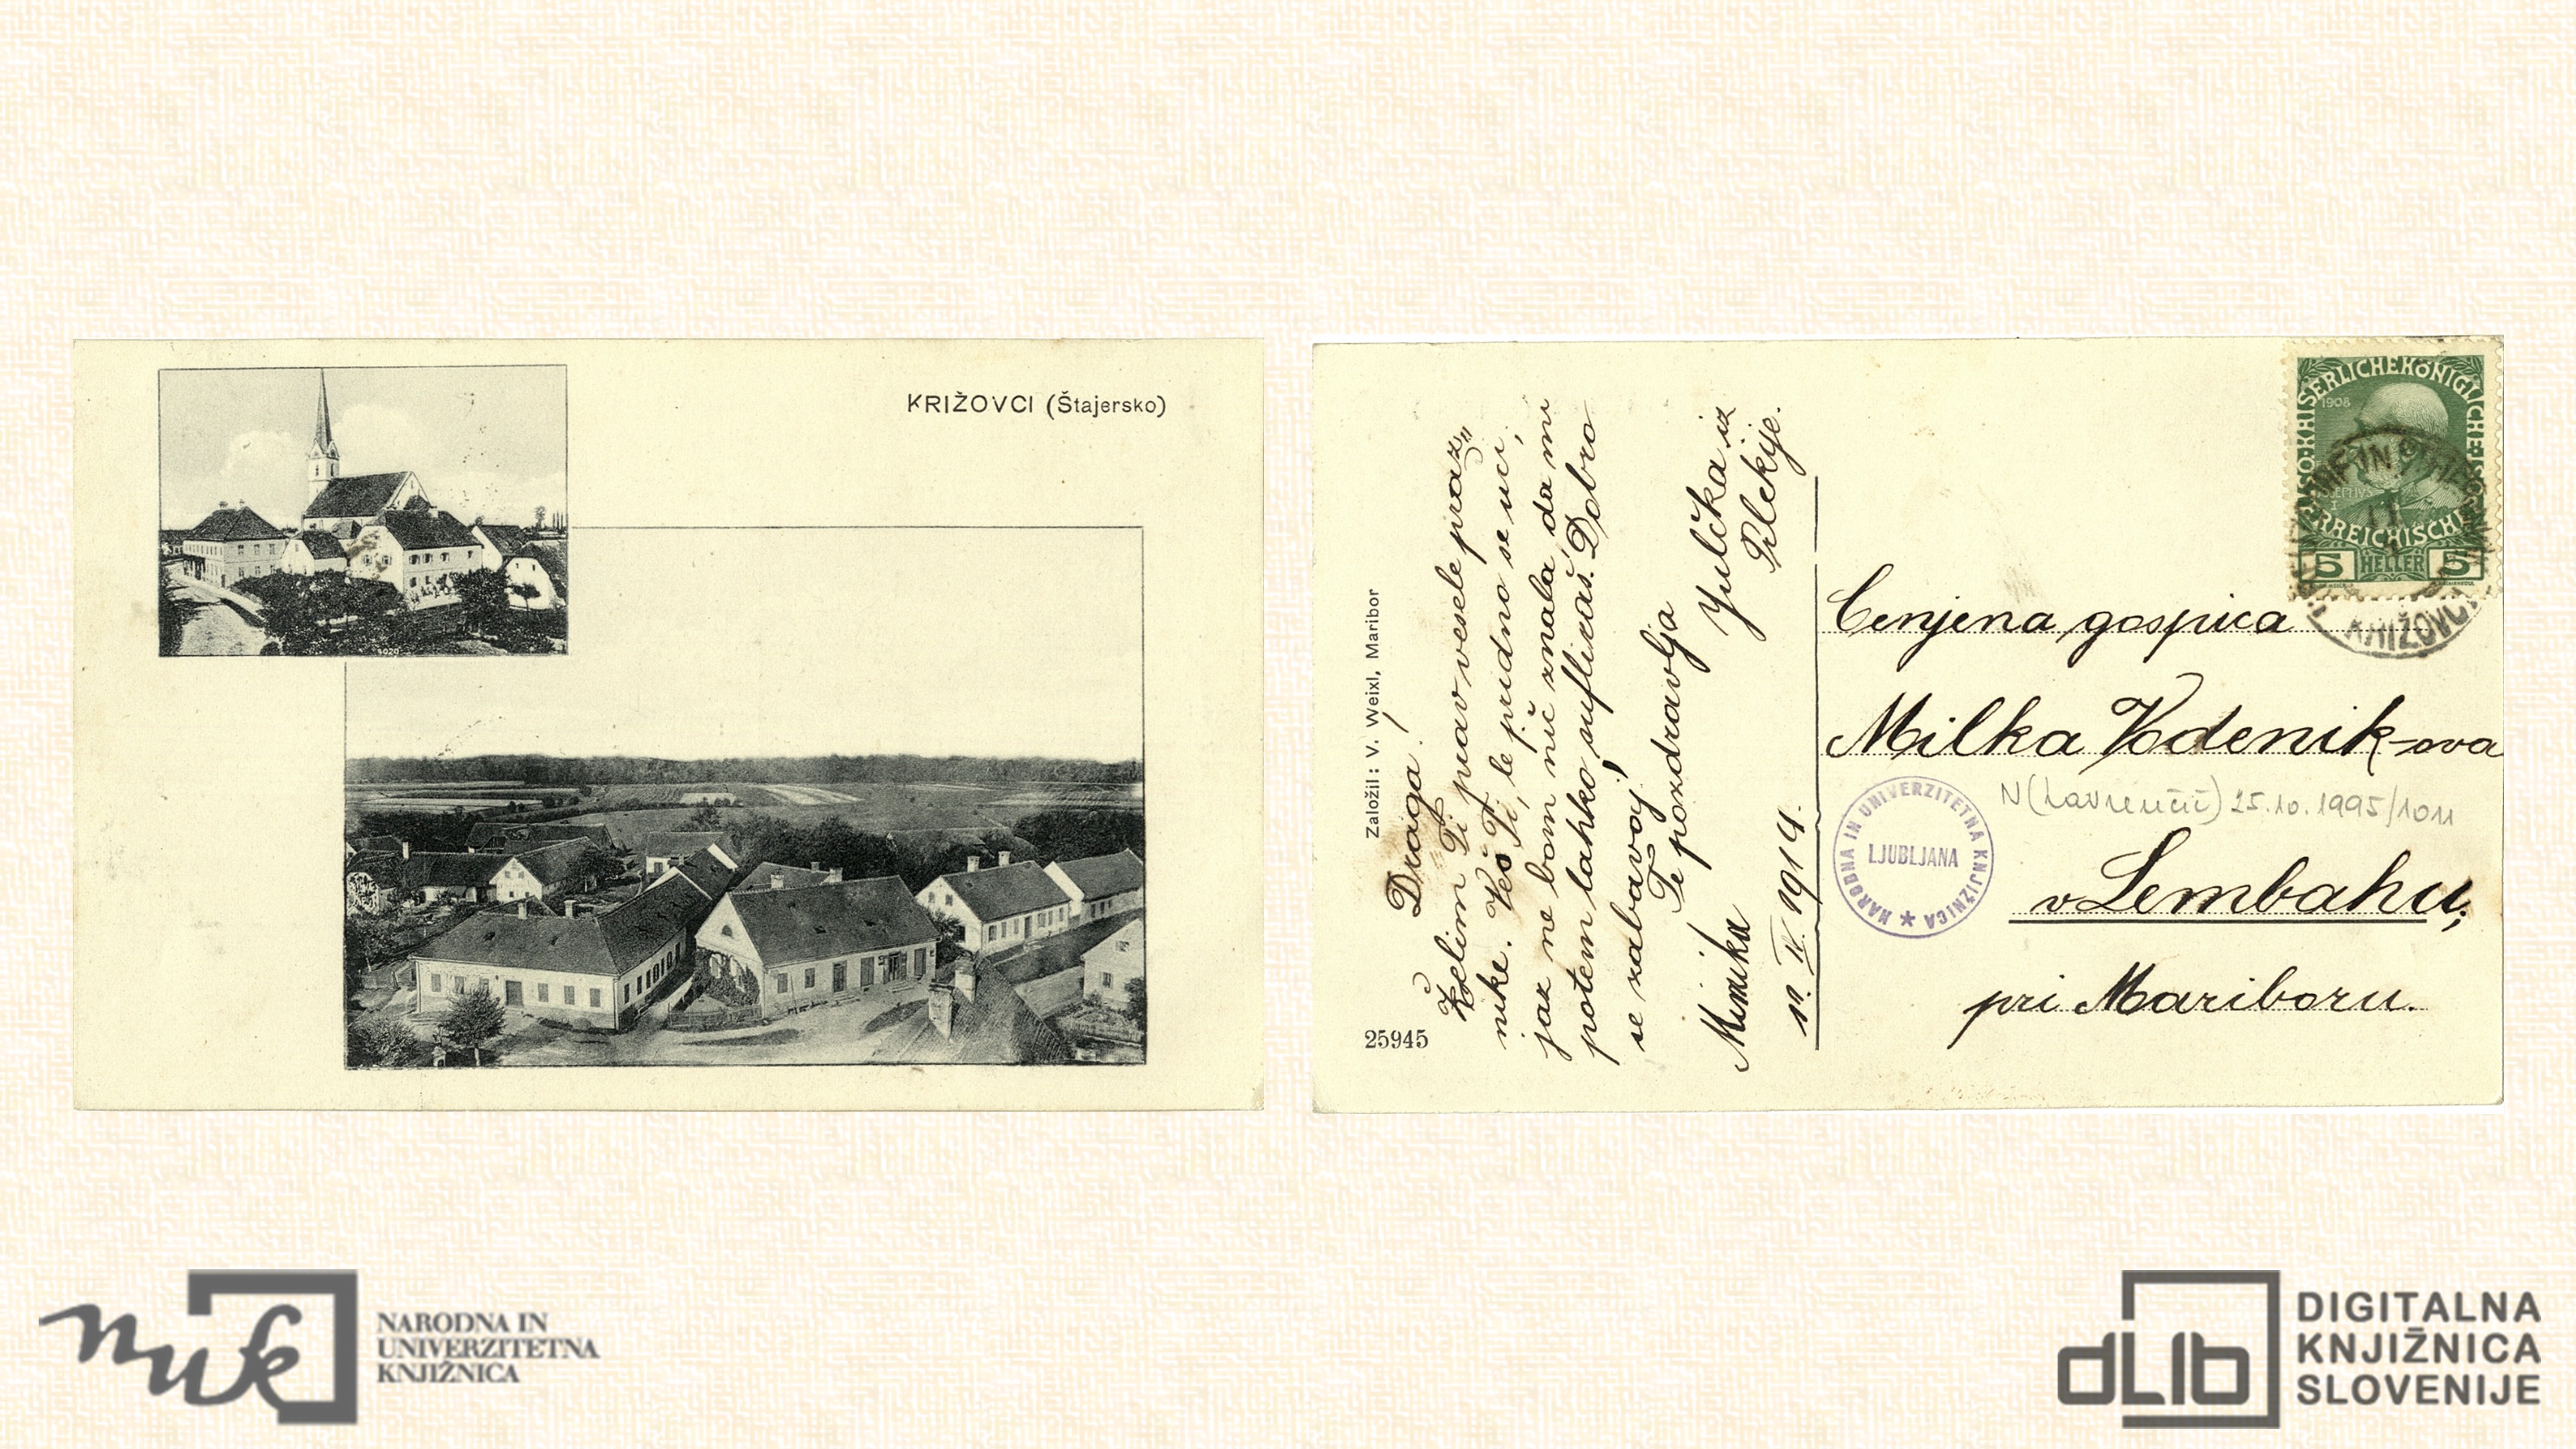 KRIŽOVCI (Štajersko)
Založil: V. Weixl, Maribor
25945
Draga!
Želim Ti prav vesele praz„
nike. Veš Ti, le pridno se uči,
jaz ne bom nič znala, da mi
potem lahko sufliraš. Dobro
se zabavaj!
Te pozdravlja
Mimika
Julčka iz
Prlekije.
1914.
KAISERLICHEKÖNIGLICHE
ÖSTERREICHISCHE
1908
5 HELLER 5
KRIŽOVCI
Cenjena gospica
Milka Vodenik-ova
N(Lavrenčič) 25.10.1995/1011
NARODNA IN UNIVERZITETNA KNJIŽNICA
LJUBLJANA
v Lembahu,
pri Mariboru.
nuk
NARODNA IN
UNIVERZITETNA
KNJIŽNICA
dLib
DIGITALNA
KNJIŽNICA
SLOVENIJE